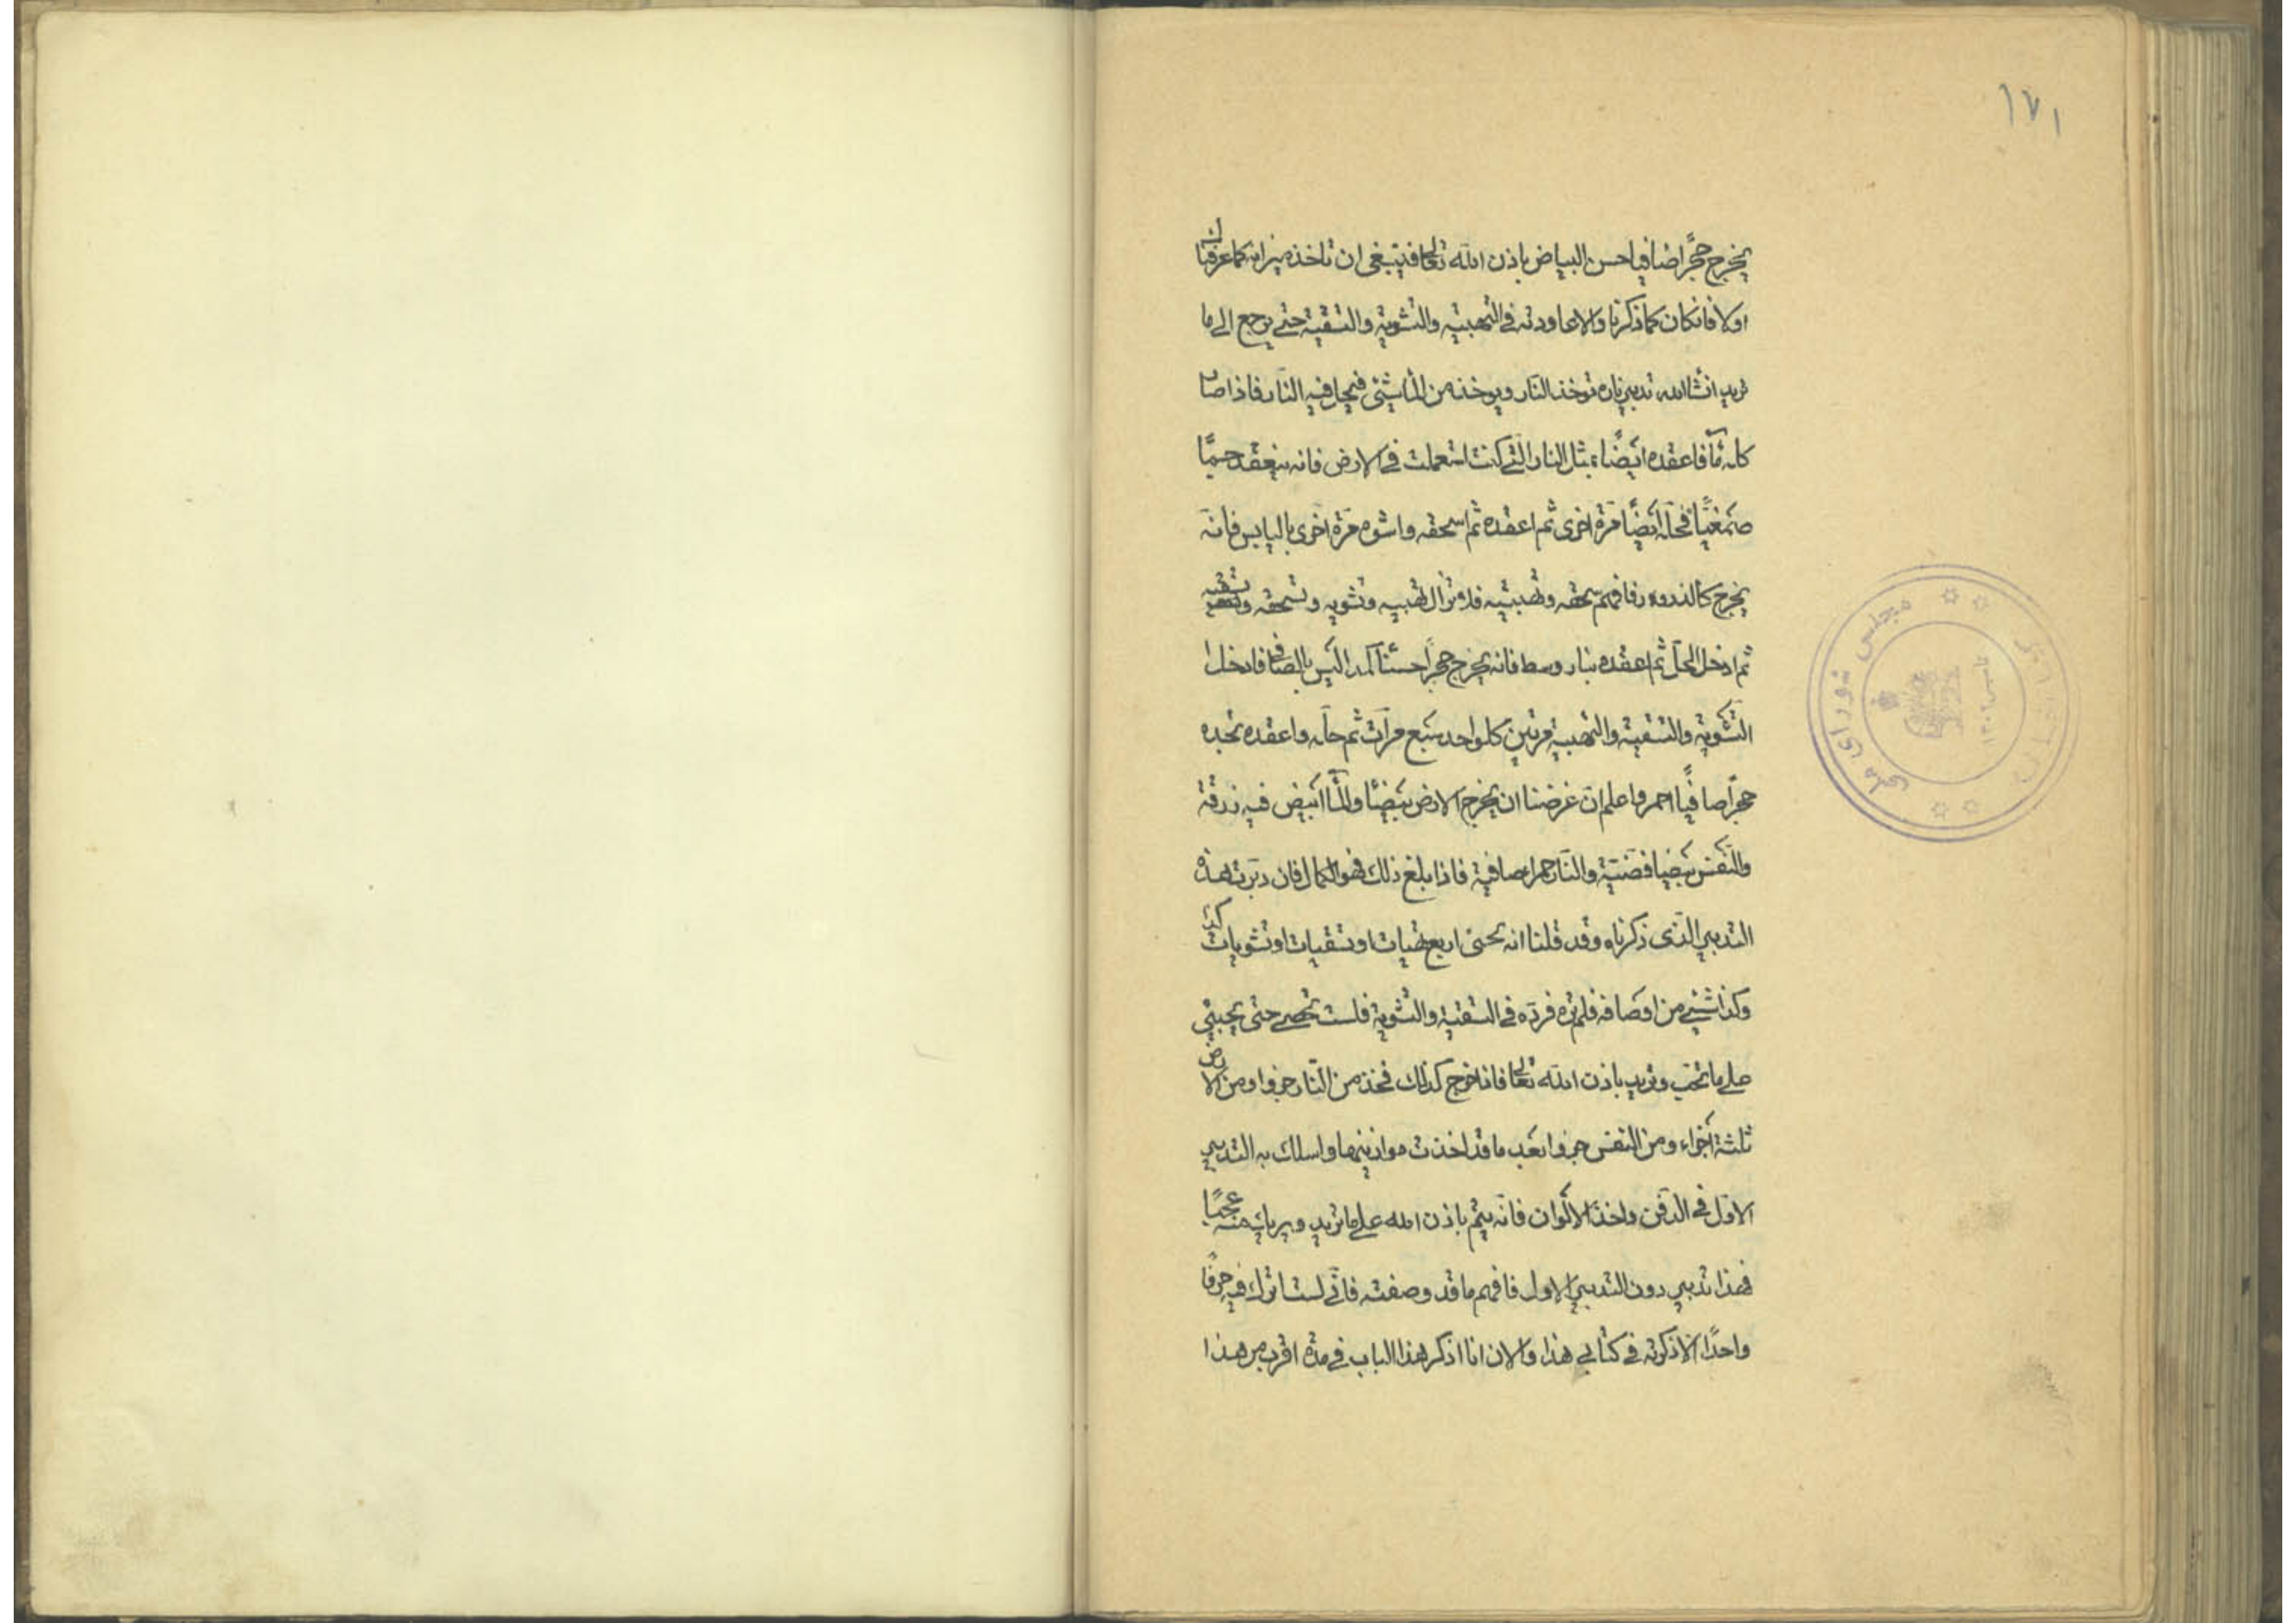 ١٧١
يخرج حجرًا صافيا حسن البياض باذن الله تعالى فينبغى ان تاخذ ميزانه كما عرفناك
اولا فانكان كما ذكرنا والا عاودته فى التهبية والتشوية والتسقية حتى يرجع الى ما
تريد انشا الله تدبير ناره تؤخذ النار ويوخذ من الماشيئى فيحل فيه النار فاذا صار
كله مآ فاعقده ايضًا بمثل النار التى كنت استعملت فى الارض فانه ينعقد جسمًا
صمغيًا فحله ايضًا مرة اخرى ثم اعقده ثم اسحقه واشوه مرة اخرى باليابس فانه
يخرج كالذرور فافهم سحقه وتهبيته فلا تزال تهبيه وتشويه وتسحقه وتسقيه
ثم ادخل الحل ثم اعقده بنار وسط فانه يخرج حجرًا حسنًا كمدا ليس بالصافى فادخل
التشوية والتسقية والتهبية مرتين كلواحد سبع مرات ثم حله واعقده تجده
حجرًا صافيًا احمر واعلم ان غرضنا ان يخرج الارض بيضًا والمآ ابيض فيه زرقة
والنفس بيضا فضية والنار حمرا صافية فاذا بلغ ذلك فهو الكمال فان دبرت هذه
التدبير الذى ذكرناه وقد قلنا انه تجئ اربع تهبيات او تسقيات او تشويات كذا
وكذا شيئ من اوصافه فلم تره فرده فى التسقية والتشوية فلست تحصى حتى يجيئى
على ما تحب وتريد باذن الله تعالى فاذا خرج كذلك فخذ من النار جزوا ومن الارض
ثلثة اجزاء ومن النفس جزوا بعد ما قد اخذت موازينها واسلك به التدبير
الاول فى الدفن واخذ الالوان فانه يتم باذن الله على ما تريد ويريك منه عجبًا
فهذا تدبير دون التدبير الاول فافهم ما قد وصفته فانى لست اترك فيه حرفًا
واحدًا الا ذكرته فى كتابى هذا والان انا اذكر هذا الباب فى مدة اقرب من هذا
مجلس شورای ملی